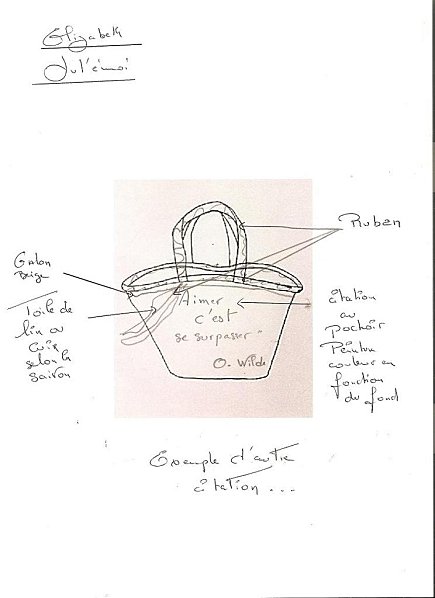 Elizabeth
Jul'émoi
Ruban
Galon
Beige
Toile de
lin ou
cuir
selon la
saison
"Aimer
c'est
se surpasser"
O. Wilde
citation
au
Pochoir
Peinture
couleur en
fonction
du fond
Exemple d'autre
citation ...